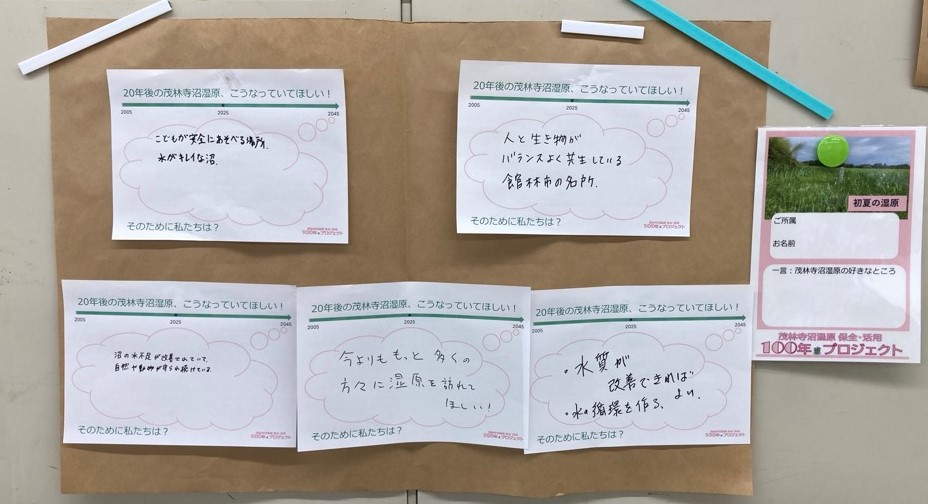 20年後の茂林寺沼湿原、こうなっていてほしい！
2005
2025
2045
こどもが安全にあそべる場所.
水がキレイな沼.
そのために私たちは？
100年プロジェクト
20年後の茂林寺沼湿原、こうなっていてほしい！
2005
2025
2045
人と生き物が
バランスよく共生している
館林市の名所.
そのために私たちは？
100年プロジェクト
初夏の湿原
ご所属
お名前
一言：茂林寺沼湿原の好きなところ
茂林寺沼湿原 保全・活用
100年プロジェクト
20年後の茂林寺沼湿原、こうなっていてほしい！
2005
2025
2045
沼の水不足が改善されていて、
自然や動物が守られ続けている.
そのために私たちは？
100年プロジェクト
20年後の茂林寺沼湿原、こうなっていてほしい！
2005
2025
2045
今よりももっと多くの
方々に湿原を訪れて
ほしい！
そのために私たちは？
100年プロジェクト
20年後の茂林寺沼湿原、こうなっていてほしい！
2005
2025
2045
・水質が
改善できれば
よい.
・水の循環を作る、
そのために私たちは？
100年プロジェクト